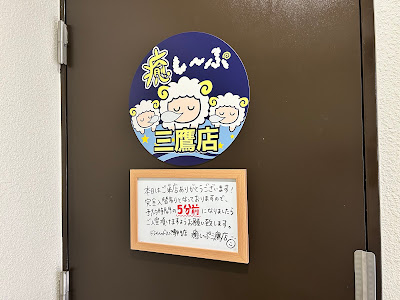 癒し〜ぷ
三鷹店
本日はご来店ありがとうございます！
完全入替制となっておりますので、
予約時間の5分前になりましたら
ご入室頂けますようお願い致します。
癒し〜ぷ三鷹店